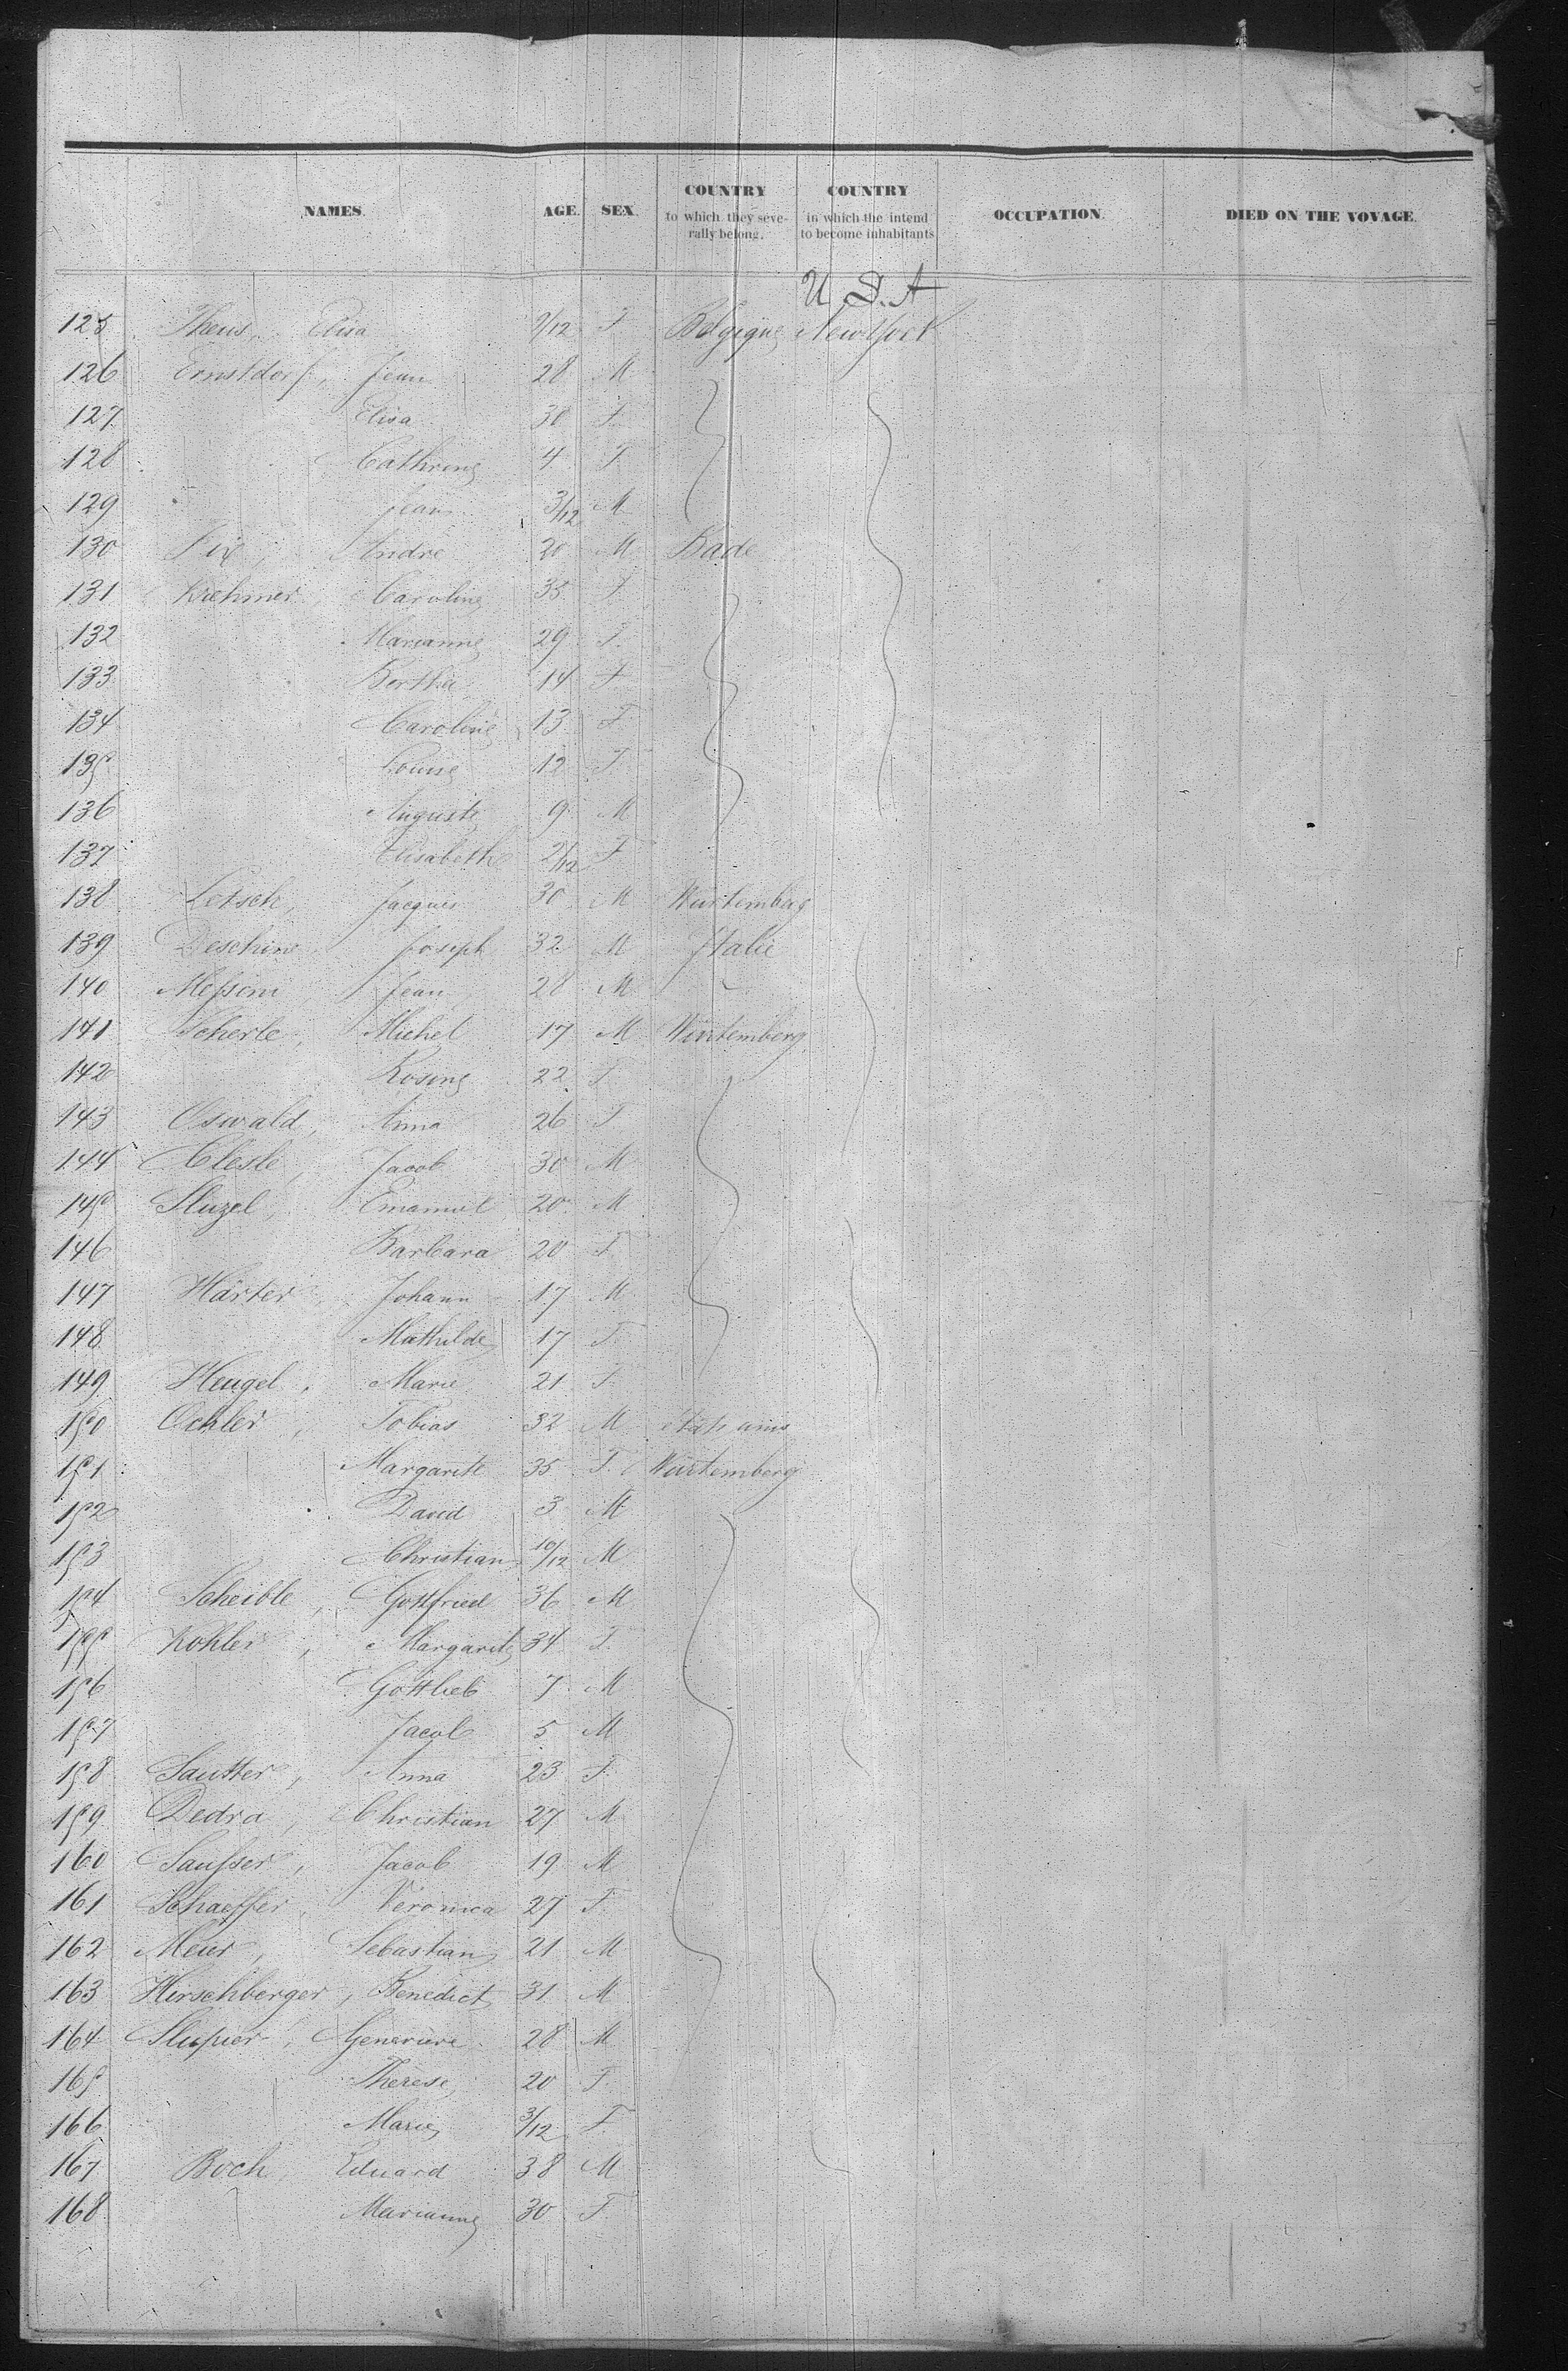 NAMES. AGE. SEX. COUNTRY to which they severally belong. COUNTRY in which the intend to become inhabitants OCCUPATION. DIED ON THE VOYAGE.
U. S. A
125 Theis, Elisa 9/12 F Belgique New York
126 Ernstdorf, Jean 28 M
127 Elisa 30 F
128 Cathrine 4 F
129 Jean 3/12 M
130 Fix, André 20 M Bade
131 Krehmer, Caroline 35 F
132 Marianne 29 F
133 Bertha 14 F
134 Caroline 13 F
135 Louise 12 F
136 Auguste 9 M
137 Elisabeth 2/12 F
138 Letsch, Jacques 30 M Wurtemberg
139 Deschino Joseph 32 M Italie
140 Messini, Jean 28 M
141 Scherle, Michel 17 M Würtemberg
142 Rosine 22 F
143 Oswald, Anna 26 F
144 Clesle, Jacob 30 M
145 Sluzel, Emanuel 20 M
146 Barbara 20 F
147 Härter, Johann 17 M
148 Mathilde 17 F
149 Heugel, Marie 21 F
150 Oehler, Tobias 32 M Etats unis
151 Margarite 35 F Würtemberg
152 David 3 M
153 Christian 10/12 M
154 Scheible, Gottfried 36 M
155 Kohler, Margarite 34 F
156 Gottlieb 7 M
157 Jacob 5 M
158 Sautter, Anna 23 F
159 Dedra, Christian 27 M
160 Sausser, Jacob 19 M
161 Schaeffer, Veronica 27 F
162 Meier, Sebastian 21 M
163 Hirschberger, Benedict 31 M
164 Genevieve 28 M
165 Therese 20 F
166 Marie 3/12 F
167 Boch, Eduard 38 M
168 Marianne 30 F